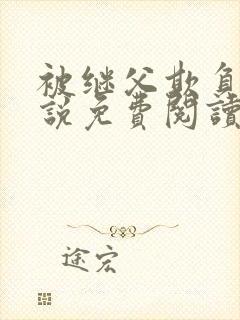 被继父欺负
説免費閱讀
途宏